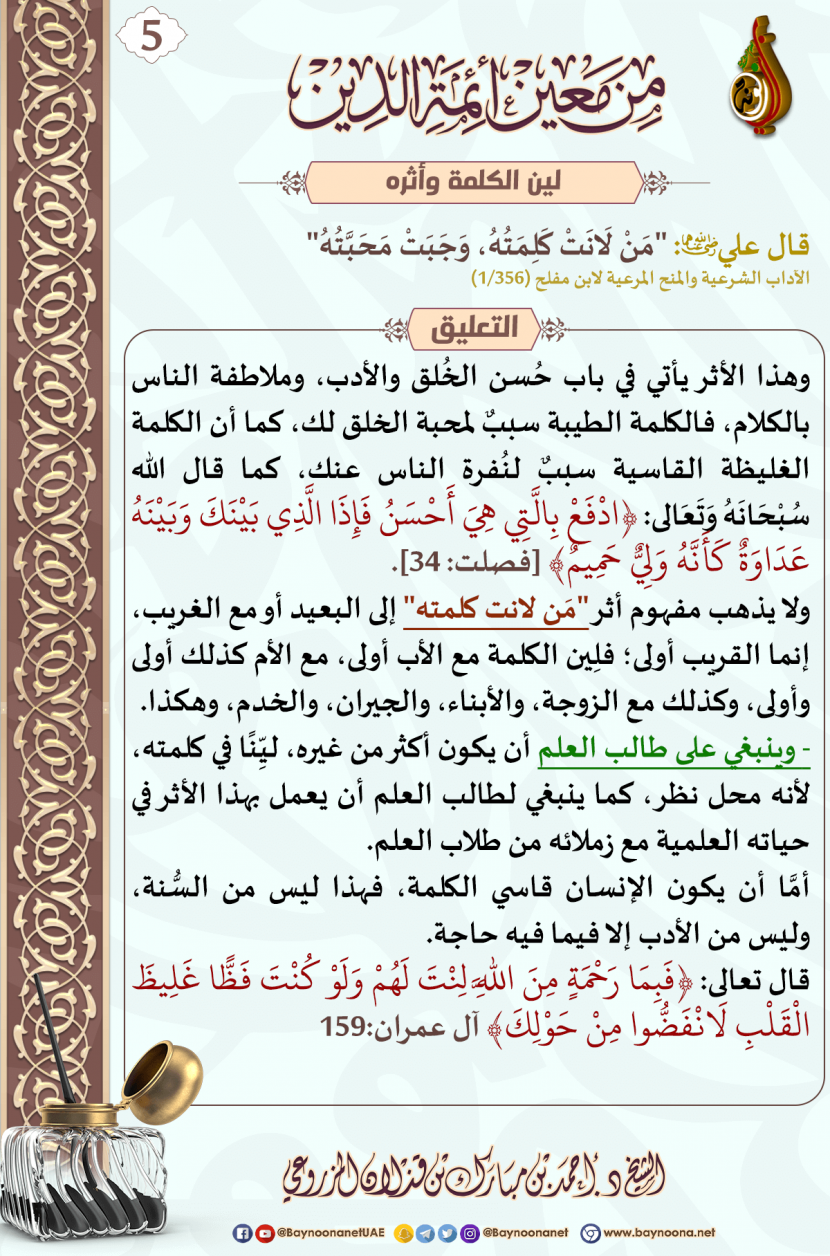 5
من معين أئمة الدين
لين الكلمة وأثره
قال علي رضي الله عنه: "مَنْ لَانَتْ كَلِمَتُهُ، وَجَبَتْ مَحَبَّتُهُ"
الآداب الشرعية والمنح المرعية لابن مفلح (1/356)
التعليق
وهذا الأثر يأتي في باب حُسن الخُلق والأدب، وملاطفة الناس
بالكلام، فالكلمة الطيبة سببٌ لمحبة الخلق لك، كما أن الكلمة
الغليظة القاسية سببٌ لنُفرة الناس عنك، كما قال الله
سُبْحَانَهُ وَتَعَالى: ﴿ادْفَعْ بِالَّتِي هِيَ أَحْسَنُ فَإِذَا الَّذِي بَيْنَكَ وَبَيْنَهُ
عَدَاوَةٌ كَأَنَّهُ وَلِيٌّ حَمِيمٌ﴾ [فصلت: 34].
ولا يذهب مفهوم أثر "مَن لانت كلمته" إلى البعيد أو مع الغريب،
إنما القريب أولى؛ فلِين الكلمة مع الأب أولى، مع الأم كذلك أولى
وأولى، وكذلك مع الزوجة، والأبناء، والجيران، والخدم، وهكذا.
- وينبغي على طالب العلم أن يكون أكثر من غيره، ليِّنًا في كلمته،
لأنه محل نظر، كما ينبغي لطالب العلم أن يعمل بهذا الأثر في
حياته العلمية مع زملائه من طلاب العلم.
أمَّا أن يكون الإنسان قاسي الكلمة، فهذا ليس من السُّنة،
وليس من الأدب إلا فيما فيه حاجة.
قال تعالى: ﴿فَبِمَا رَحْمَةٍ مِنَ اللَّهِ لِنْتَ لَهُمْ وَلَوْ كُنْتَ فَظًّا غَلِيظَ
الْقَلْبِ لَانْفَضُّوا مِنْ حَوْلِكَ﴾ آل عمران:159
الشيخ د. أحمد بن مبارك بن قذلان المزروعي
@BaynoonanetUAE @Baynoonanet www.baynoona.net